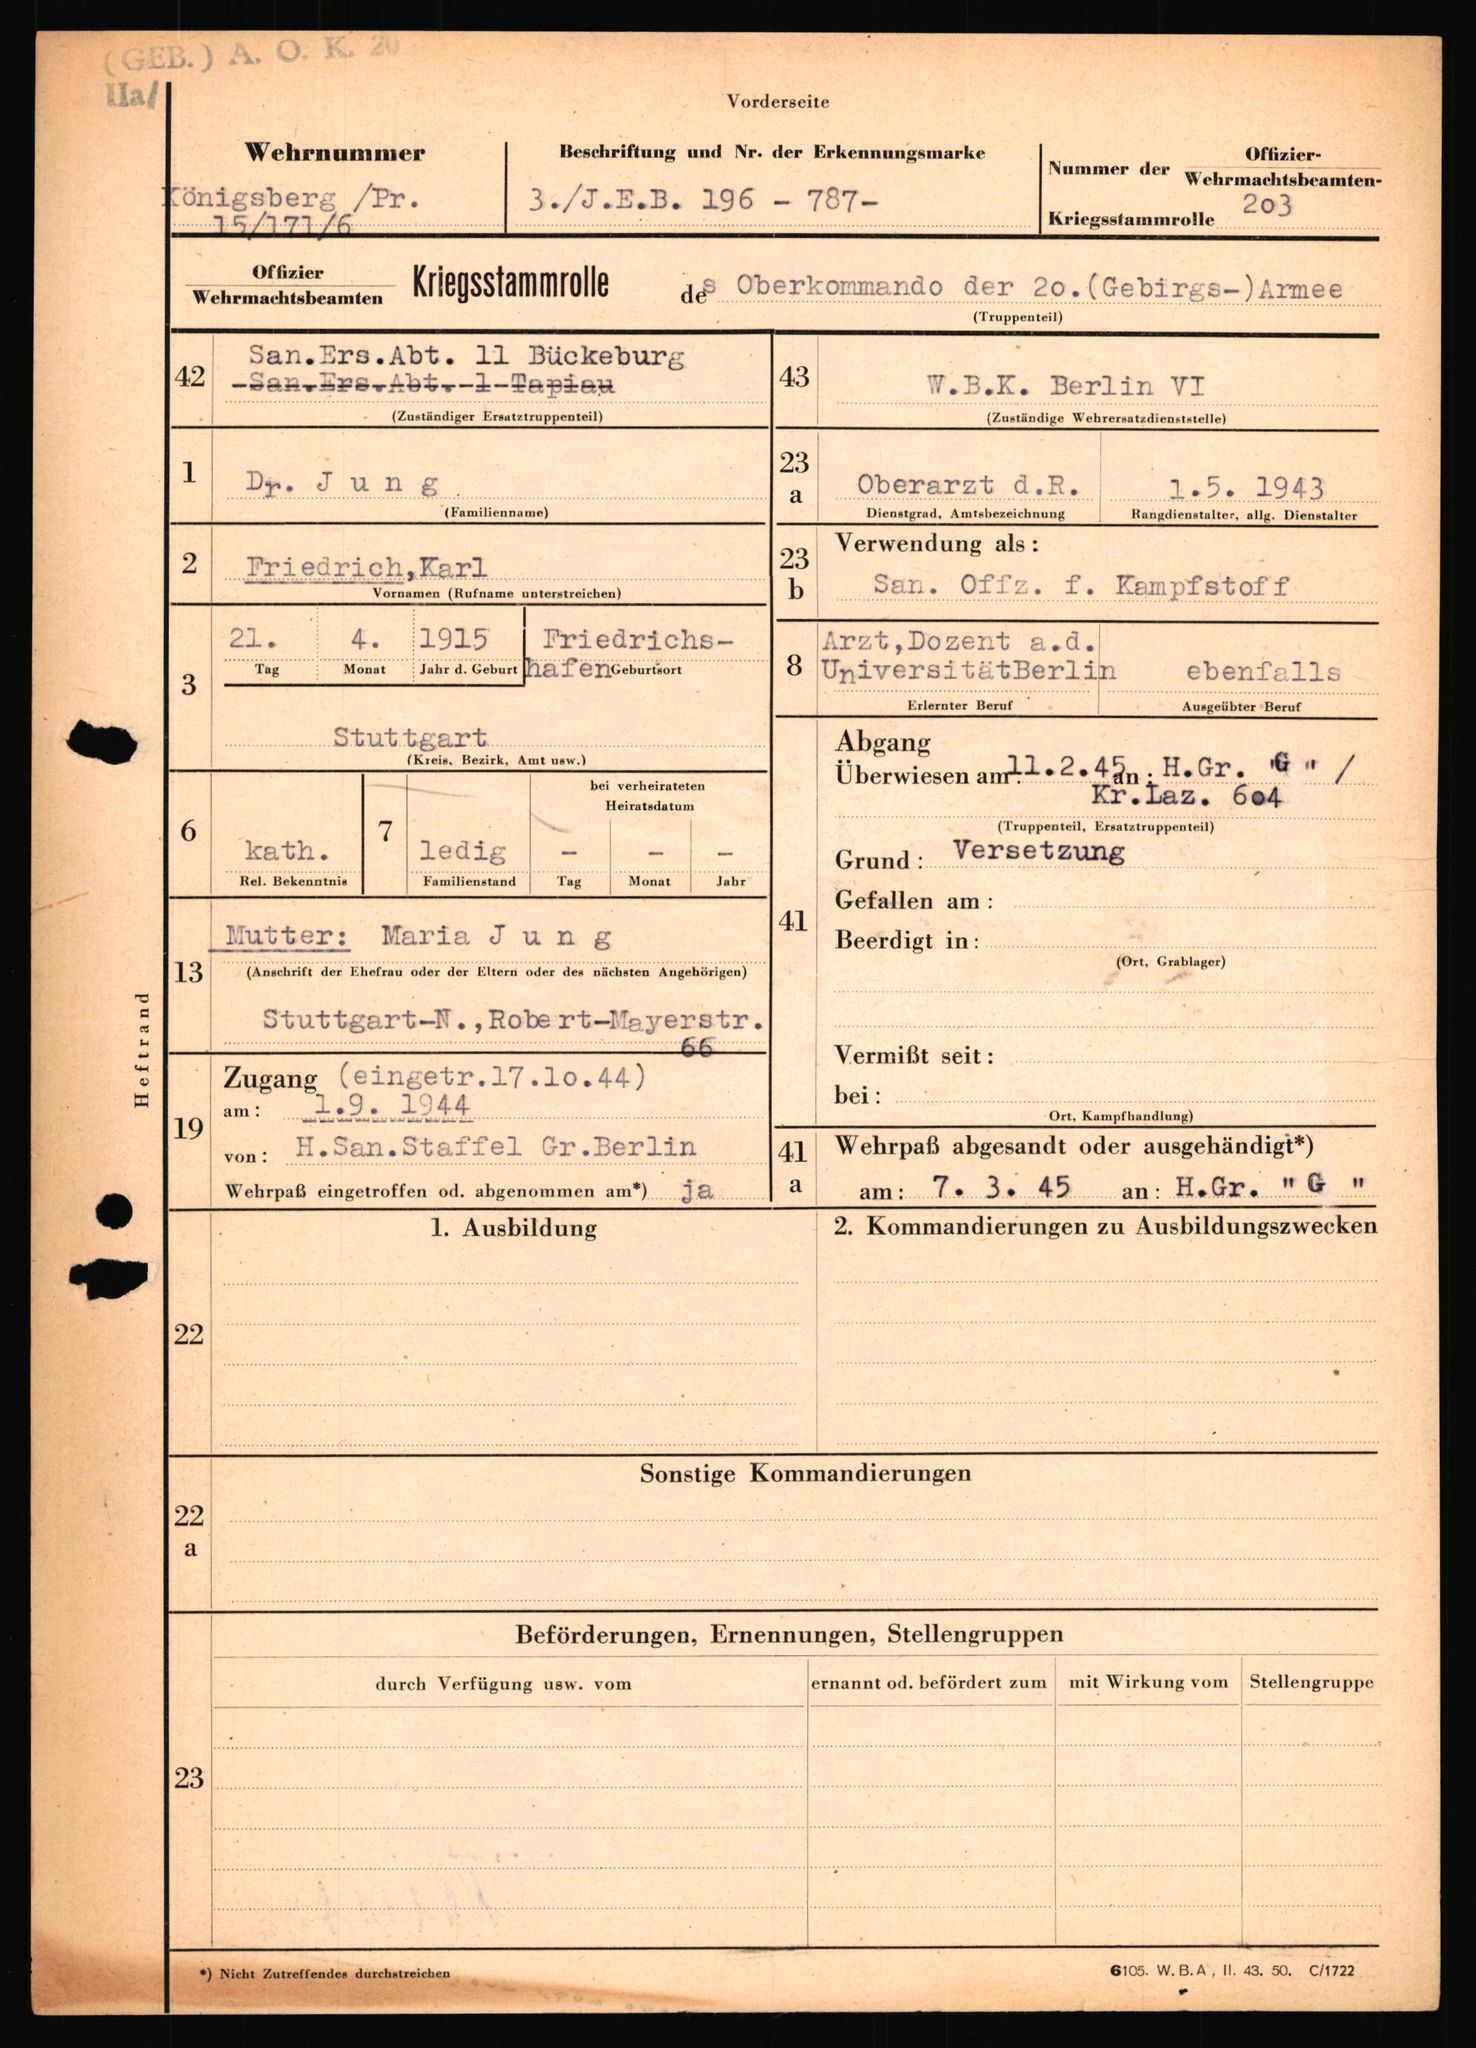 (GEB.) A. O. K. 20
IIa/
Vorderseite
Wehrnummer
Königsberg /Pr.
15/171/6
Beschriftung und Nr. der Erkennungsmarke
3./J.E.B. 196 - 787-
Nummer der Offizier-
Wehrmachtsbeamten-
Kriegsstammrolle 203
Offizier
Wehrmachtsbeamten Kriegsstammrolle des Oberkommando der 2o.(Gebirgs-)Armee
(Truppenteil)
42
San.Ers.Abt. 11 Bückeburg
-San.Ers.Abt.-1-Tapiau
(Zuständiger Ersatztruppenteil)
43
W.B.K. Berlin VI
(Zuständige Wehrersatzdienststelle)
1
Dr. J u n g
(Familienname)
23 a
Oberarzt d.R. 1.5. 1943
Dienstgrad, Amtsbezeichnung Rangdienstalter, allg. Dienstalter
2
Friedrich,Karl
Vornamen (Rufname unterstreichen)
23 b
Verwendung als:
San. Offz. f. Kampfstoff
3
21. 4. 1915 Friedrichs-
hafen
Tag Monat Jahr d. Geburt Geburtsort
Stuttgart
(Kreis, Bezirk, Amt usw.)
8
Arzt,Dozent a.d.
UniversitätBerlin ebenfalls
Erlernter Beruf Ausgeübter Beruf
6
kath.
Rel. Bekenntnis
7
bei verheirateten
Heiratsdatum
ledig - - -
Familienstand Tag Monat Jahr
41
Abgang
Überwiesen am: 11.2.45 an: H.Gr. "G" /
Kr.Laz. 6o4
(Truppenteil, Ersatztruppenteil)
Grund: Versetzung
Gefallen am:
Beerdigt in:
(Ort, Grablager)
Vermißt seit:
bei:
Ort, Kampfhandlung)
13
Mutter: Maria J u n g
(Anschrift der Ehefrau oder der Eltern oder des nächsten Angehörigen)
Stuttgart-N.,Robert-Mayerstr.
66
Heftrand
19
Zugang (eingetr.17.1o.44)
am: 1.9. 1944
von: H.San.Staffel Gr.Berlin
Wehrpaß eingetroffen od. abgenommen am*) ja
41 a
Wehrpaß abgesandt oder ausgehändigt*)
am: 7. 3. 45 an: H.Gr. " G "
22
1. Ausbildung
2. Kommandierungen zu Ausbildungszwecken
22 a
Sonstige Kommandierungen
23
Beförderungen, Ernennungen, Stellengruppen
durch Verfügung usw. vom ernannt od. befördert zum mit Wirkung vom Stellengruppe
*) Nicht Zutreffendes durchstreichen
6105. W.B.A, II. 43. 50. C/1722